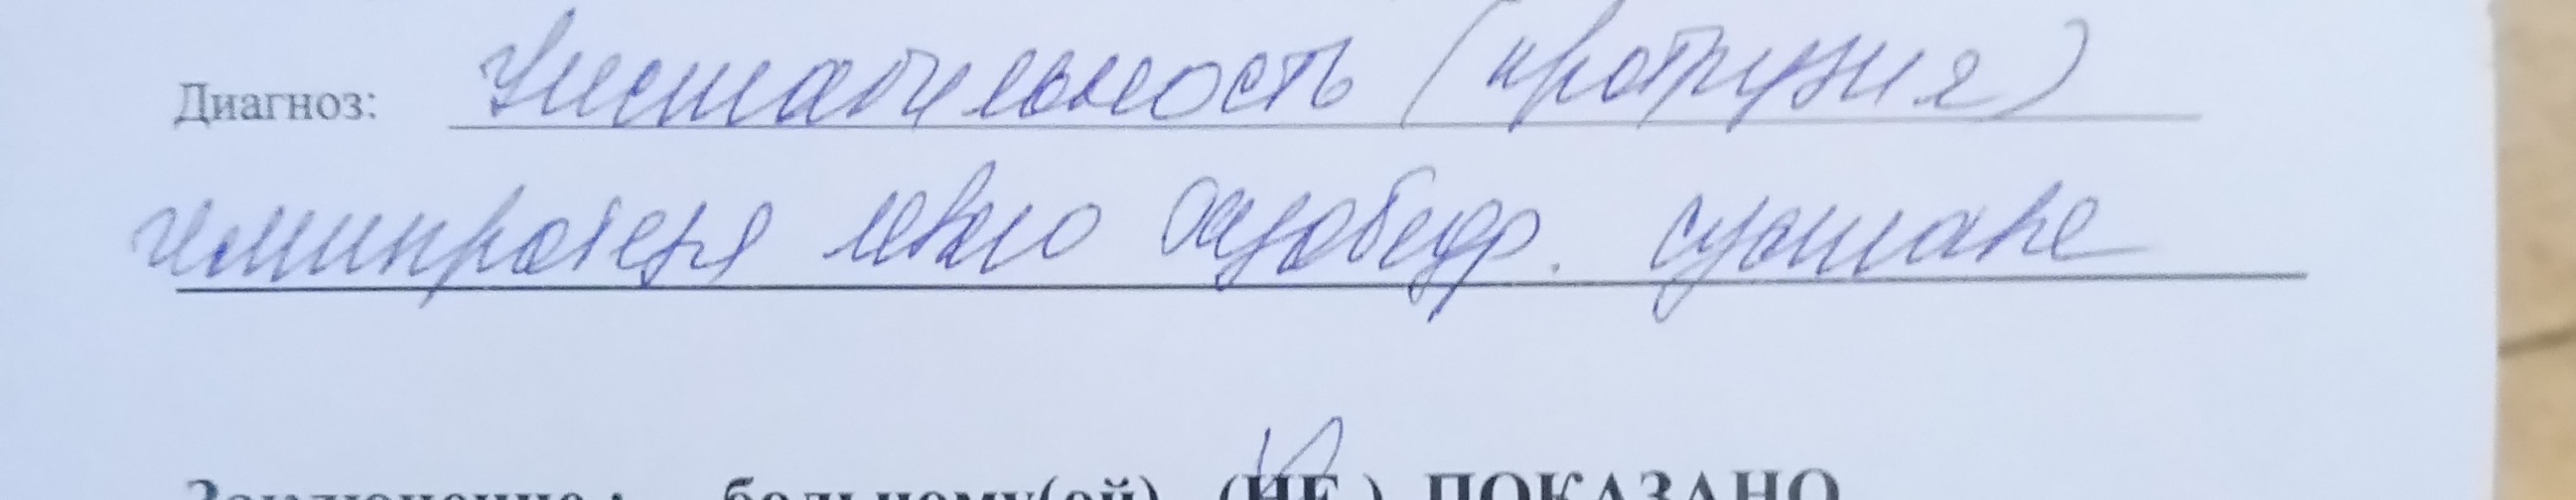 Диагноз: Нестабильность (протрузия)
эндопротеза левого тазобедр. сустава
Заключение : больному(ой) (НЕ ) ПОКАЗАНО